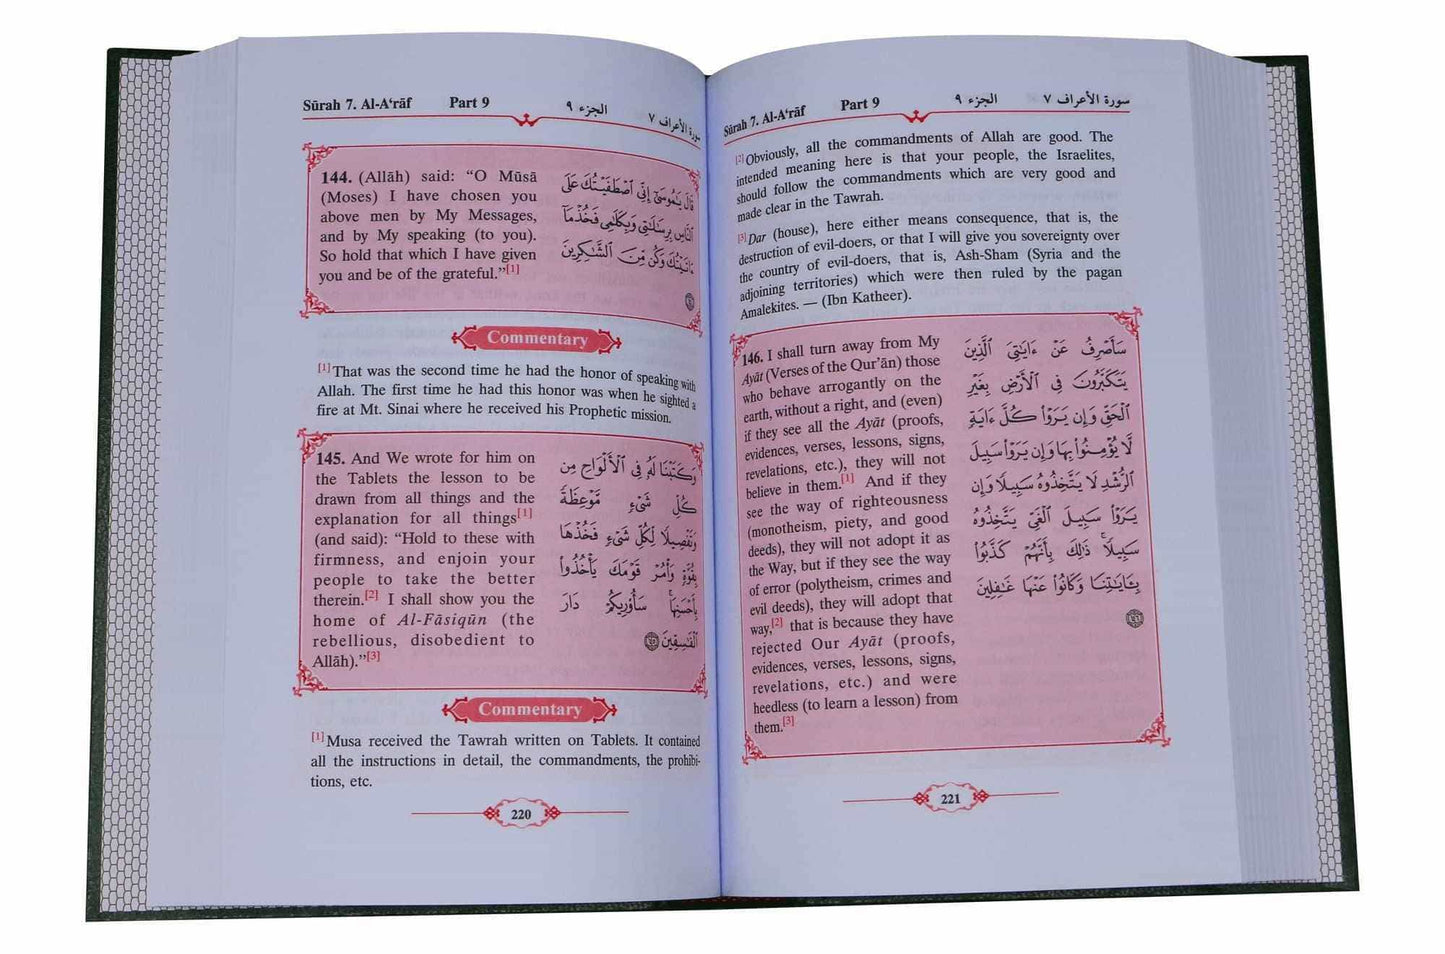 Sūrah 7. Al-A‘rāf Part 9 الجزء ٩ سورة الأعراف ٧
144. (Allāh) said: “O Mūsā
(Moses) I have chosen you
above men by My Messages,
and by My speaking (to you).
So hold that which I have given
you and be of the grateful.”[1]
قَالَ يَـٰمُوسَىٰٓ إِنِّى ٱصْطَفَيْتُكَ عَلَى
ٱلنَّاسِ بِرِسَـٰلَـٰتِى وَبِكَلَـٰمِى فَخُذْ مَآ
ءَاتَيْتُكَ وَكُن مِّنَ ٱلشَّـٰكِرِينَ
١٤٤
Commentary
[1]That was the second time he had the honor of speaking with
Allah. The first time he had this honor was when he sighted a
fire at Mt. Sinai where he received his Prophetic mission.
145. And We wrote for him on
the Tablets the lesson to be
drawn from all things and the
explanation for all things[1]
(and said): “Hold to these with
firmness, and enjoin your
people to take the better
therein.[2] I shall show you the
home of Al-Fāsiqūn (the
rebellious, disobedient to
Allāh).”[3]
وَكَتَبْنَا لَهُۥ فِى ٱلْأَلْوَاحِ مِن
كُلِّ شَىْءٍ مَّوْعِظَةً
وَتَفْصِيلًا لِّكُلِّ شَىْءٍ فَخُذْهَا
بِقُوَّةٍ وَأْمُرْ قَوْمَكَ يَأْخُذُوا۟
بِأَحْسَنِهَا ۚ سَأُو۟رِيكُمْ دَارَ
ٱلْفَـٰسِقِينَ ١٤٥
Commentary
[1]Musa received the Tawrah written on Tablets. It contained
all the instructions in detail, the commandments, the prohibi-
tions, etc.
220
Sūrah 7. Al-A‘rāf Part 9 الجزء ٩ سورة الأعراف ٧
[2]Obviously, all the commandments of Allah are good. The
intended meaning here is that your people, the Israelites,
should follow the commandments which are very good and
made clear in the Tawrah.
[3]Dar (house), here either means consequence, that is, the
destruction of evil-doers, or that I will give you sovereignty over
the country of evil-doers, that is, Ash-Sham (Syria and the
adjoining territories) which were then ruled by the pagan
Amalekites. — (Ibn Katheer).
146. I shall turn away from My
Ayāt (Verses of the Qur’ān) those
who behave arrogantly on the
earth, without a right, and (even)
if they see all the Ayāt (proofs,
evidences, verses, lessons, signs,
revelations, etc.), they will not
believe in them.[1] And if they
see the way of righteousness
(monotheism, piety, and good
deeds), they will not adopt it as
the Way, but if they see the way
of error (polytheism, crimes and
evil deeds), they will adopt that
way,[2] that is because they have
rejected Our Ayāt (proofs,
evidences, verses, lessons, signs,
revelations, etc.) and were
heedless (to learn a lesson) from
them.[3]
سَأَصْرِفُ عَنْ ءَايَـٰتِىَ ٱلَّذِينَ
يَتَكَبَّرُونَ فِى ٱلْأَرْضِ بِغَيْرِ
ٱلْحَقِّ وَإِن يَرَوْا۟ كُلَّ ءَايَةٍ
لَّا يُؤْمِنُوا۟ بِهَا وَإِن يَرَوْا۟ سَبِيلَ
ٱلرُّشْدِ لَا يَتَّخِذُوهُ سَبِيلًا وَإِن
يَرَوْا۟ سَبِيلَ ٱلْغَىِّ يَتَّخِذُوهُ
سَبِيلًا ۚ ذَٰلِكَ بِأَنَّهُمْ كَذَّبُوا۟
بِـَٔايَـٰتِنَا وَكَانُوا۟ عَنْهَا غَـٰفِلِينَ
١٤٦
221